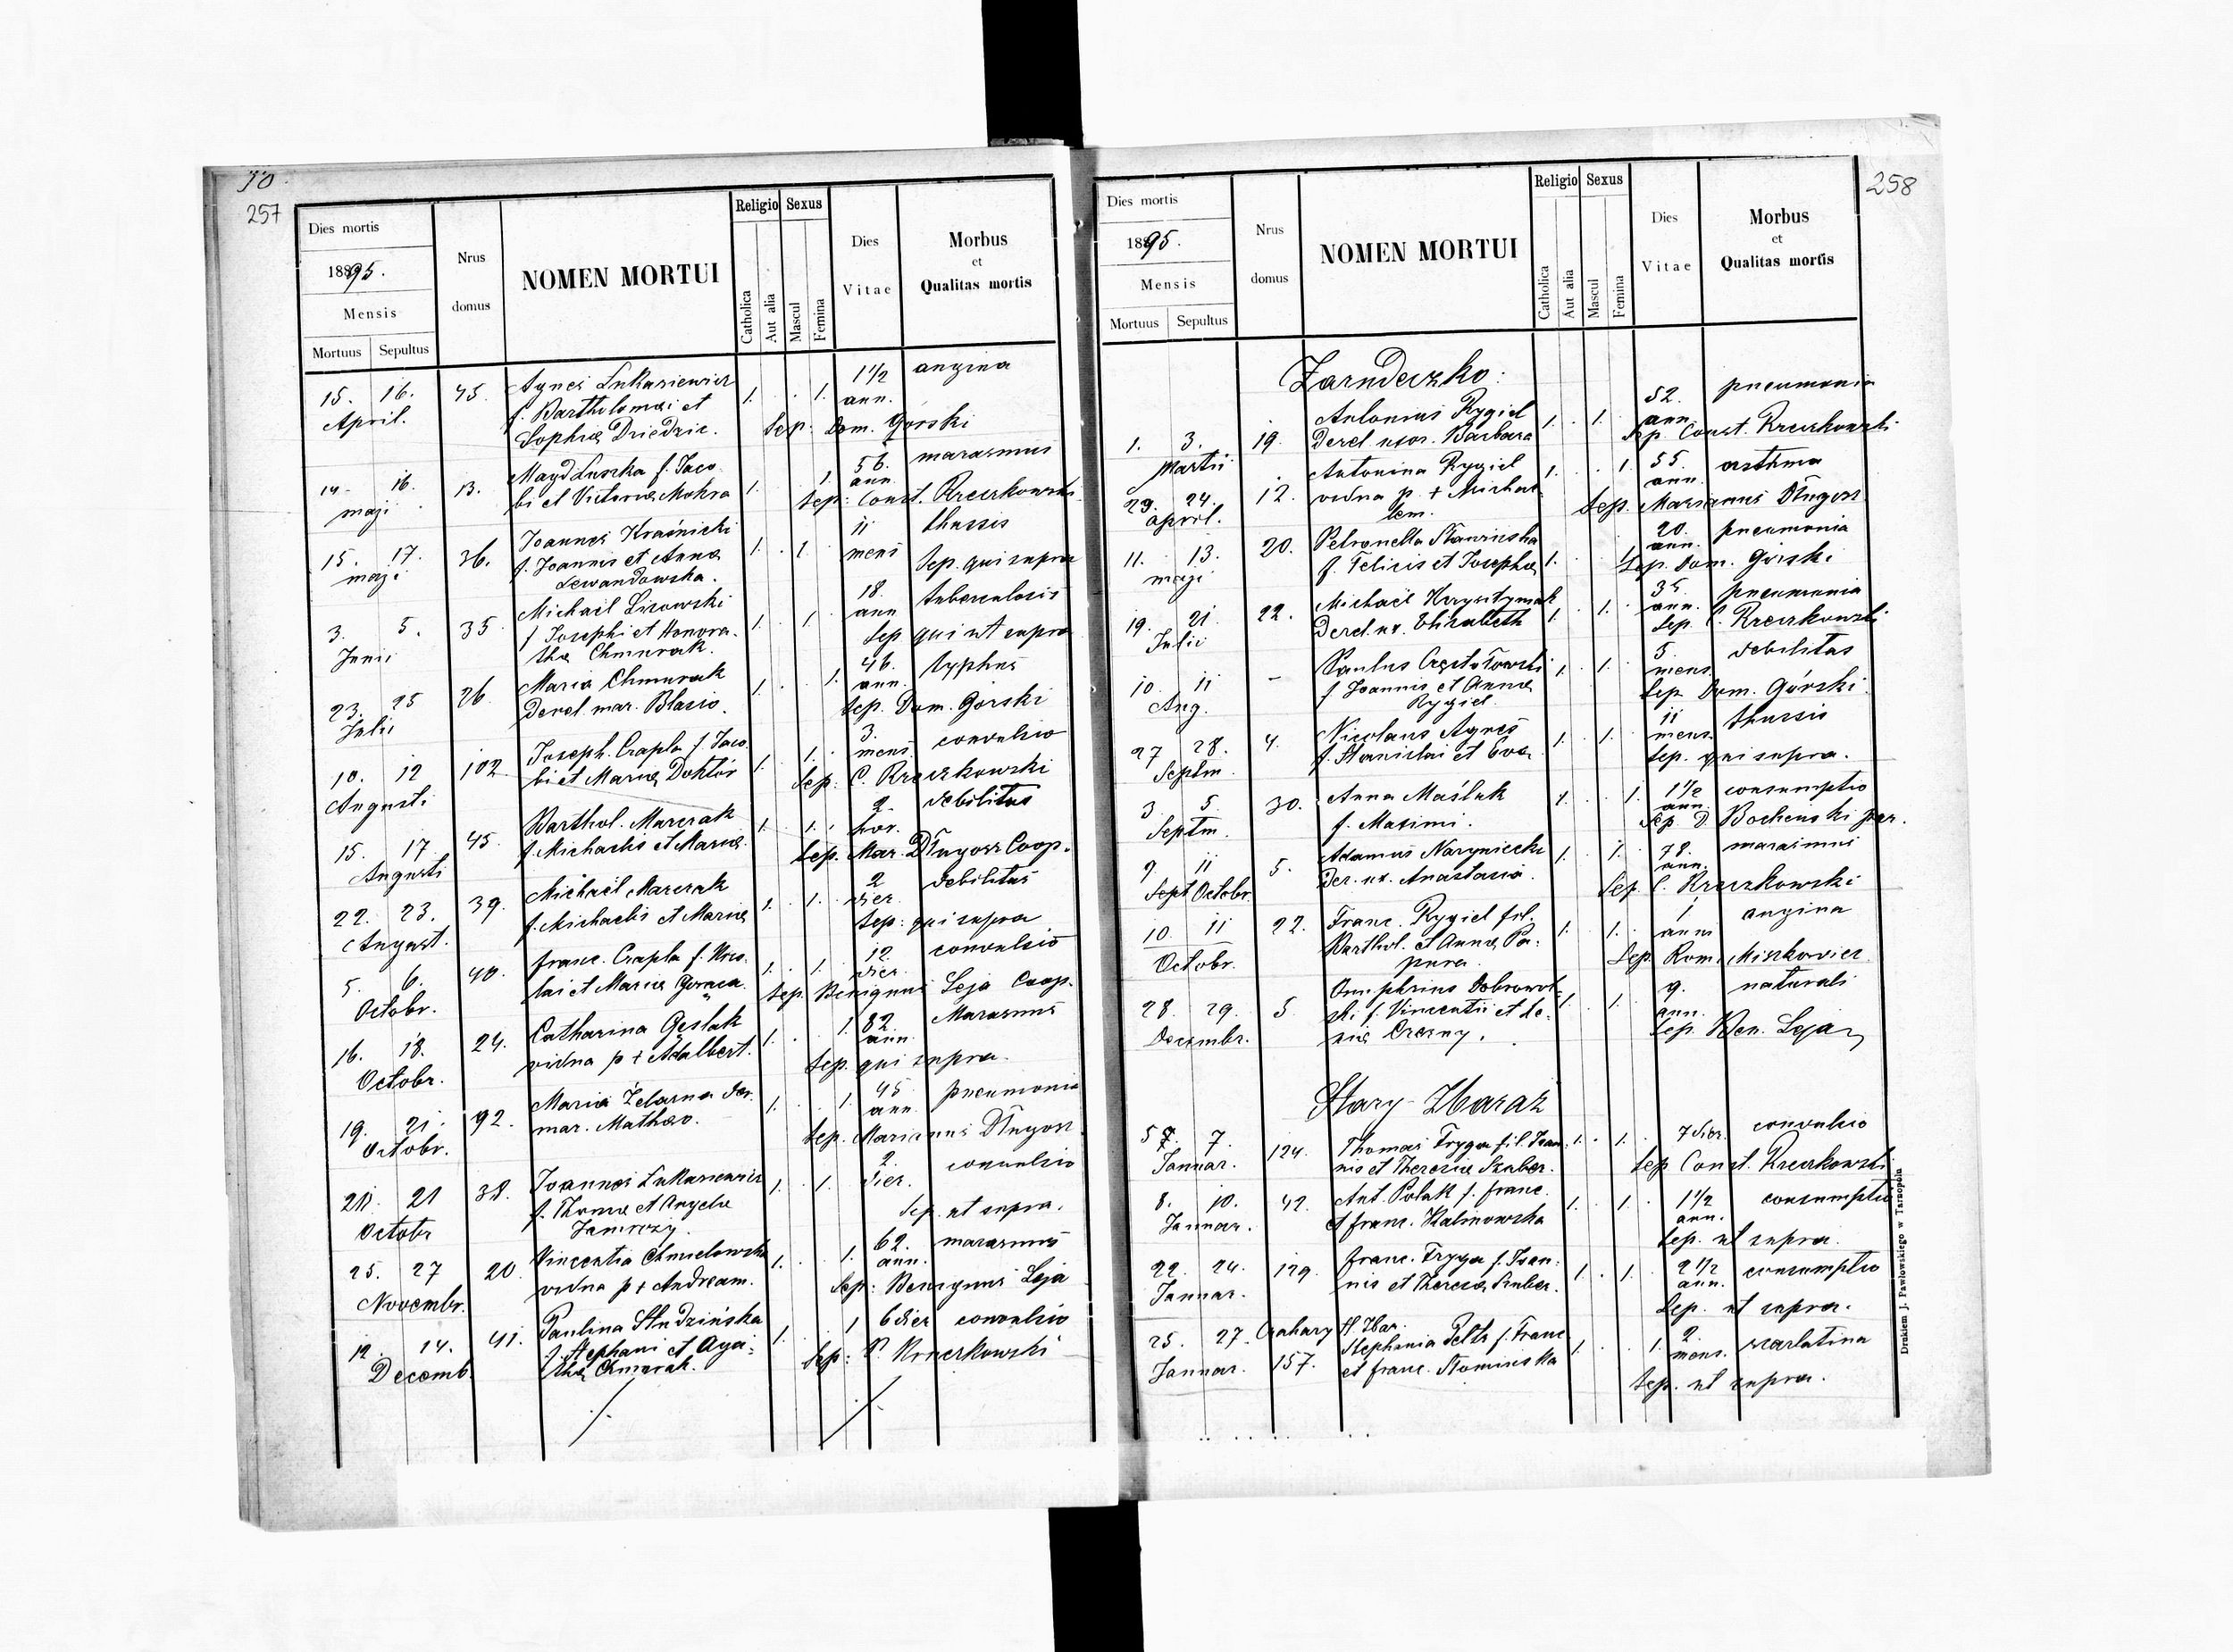 257
Dies mortis
1895.
Mensis
Mortuus Sepultus
Nrus domus
NOMEN MORTUI
Religio Sexus
Catholica Aut alia Mascul Femina
Dies Vitae
Morbus et Qualitas mortis
15. 16. 45. Agnes Lukasiewicz 1. 1. 1 1/2 ann. angina
April. f. Bartholomaei et
Sophiae Dziedzic. Sep. Dom. Górski
14. 16. 13. Magd Luszka f. Jaco- 1. 1. 56. ann. marasmus
maji bi et Victoriae Mokra Sep: Const. Kreczkowski
15. 17. 36. Joannes Kraśnicki 1. 1. 11 mens thussis
maji f. Joannis et Anna
Lewandowska. Sep. qui supra
3. 5. 35. Michaël Lisowski 1. 1. 18. ann tuberculosis
Junii f Josephi et Honora-
tha Chmurak. Sep qui ut supra
23. 25 26. Maria Chmurak 1. 1. 46. ann. typhus
Julii Derel. mar. Blasio. Sep. Dom. Górski
10. 12 102 Joseph. Czapla f. Jaco 1. 1. 3. mens convulsio
Augusti bi et Maria Doktór Sep. C. Kreczkowski
15. 17 45. Barthol. Marczak 1. 1. 2. hor. debilitas
Augusti f. Michaelis et Maria. Sep. Mar. Długosz Coop.
22. 23. 39. Michaël Marczak 1. 1. 2 dier debilitas
August. f. Michaelis et Maria Sep: qui supra
5. 6. 40. Franc. Czapla f. Nico- 1. 1. 12. dier convulsio
Octobr. lai et Maria Sep. Benignus Leja Coop.
16. 18. 24. Catharina Gęslak 1. 1. 82. ann. Marasmus
Octobr. vidua p + Adalbert. Sep. qui supra.
19. 21. 92. Maria Żelazna der. 1. 1. 45 ann. pneumonia
Octobr. mar. Mathaeo. Sep. Marianus Długosz
21 38. Joannes Lukasiewicz 1. 1. 2. dier. convulsio
Octobr f. Thoma et Angela
Jamrozy. Sep. ut supra.
25. 27 20. Vincentia Chmielowska 1. 1. 62. ann. marasmus
Novembr. vidua p + Andream. Sep: Benignus Leja
12. 14. 41. Paulina Studzińska 1. 1 6 dier convulsio
Decemb. f. Stephani et Aga-
tha Chmurak. Sep: C. Kreczkowski
258
Dies mortis
1895.
Mensis
Mortuus Sepultus
Nrus domus
NOMEN MORTUI
Religio Sexus
Catholica Aut alia Mascul Femina
Dies Vitae
Morbus et Qualitas mortis
Zarudeczko:
Antonius Rygiel 1. 1. 52. ann. pneumonia
1. 3. 19. Derel uxor. Barbara Sep. Const. Kreczkowski
Martii
Antonina Rygiel 1. 1. 55. ann. asthma
23. 24. 12. vidua p. + Michae-
April. lem. Sep. Marianus Długosz
11. 13. 20. Petronella 1. 1. 20. ann. pneumonia
maji f. Felicis et Josepha Sep. Dom. Górski
19. 21 22. Michaël Krysztymak 1. 1. 35. ann. pneumonia
Julii Derel. ux. Elisabeth Sep. C. Kreczkowski
10. 11 - Paulus 1. 1. 5 mens debilitas
Aug. f Joannis et Anna
Rygiel. Sep Dom. Górski.
27 28. 4. Nicolaus Agnes 1. 1. 11 mens. thussis
Septm. f. Stanislai et Eva Sep. qui supra.
3. 5. 30. Anna Maślak 1. 1. 1 1/2 ann. consumptio
Septm. f. Maximi. Sep. D. Bochenski par.
9. 11 5. Adamus Naryniecki 1. 1. 78. ann. marasmus
Sept Octobr. der. ux. Anastasia. Sep. C. Kreczkowski
10. 11 22. Franc. Rygiel fil. 1. 1. 1 ann angina
Octobr. Barthol. et Anna Pa-
pura. Sep. Rom. Miszkowicz
28. 29. 5. Onuphrius Dobrowol- 1. 1. 9. ann. naturali
Decembr. ski f. Vincentii et Lo-
nia Czerny. Sep. Ben. Leja
Stary-Zbaraż
7. 124. Thomas Fryga fil. Joan- 1. 1. 7 dier. convulsio
Januar. nis et Theresia Szuber. Sep Const. Kreczkowski
8. 10. 42. Ant. Polak f. franc. 1. 1. 1 1/2 ann. consumptio
Januar. et franc. Kalinowska Sep. ut supra.
22. 24. 129. franc. Fryga f. Joan- 1. 1. 2 1/2 ann. consumptio
Januar. nis et Theresia Szuber. Sep. ut supra.
25. 27. Czahary St. Zbar.
Januar. 157. Stephania Peltz f. Franc 1. 1. 2. mens. scarlatina
et franc. Słomińska
Sep. ut supra.
Drukiem J. Pawłowskiego w Tarnopolu